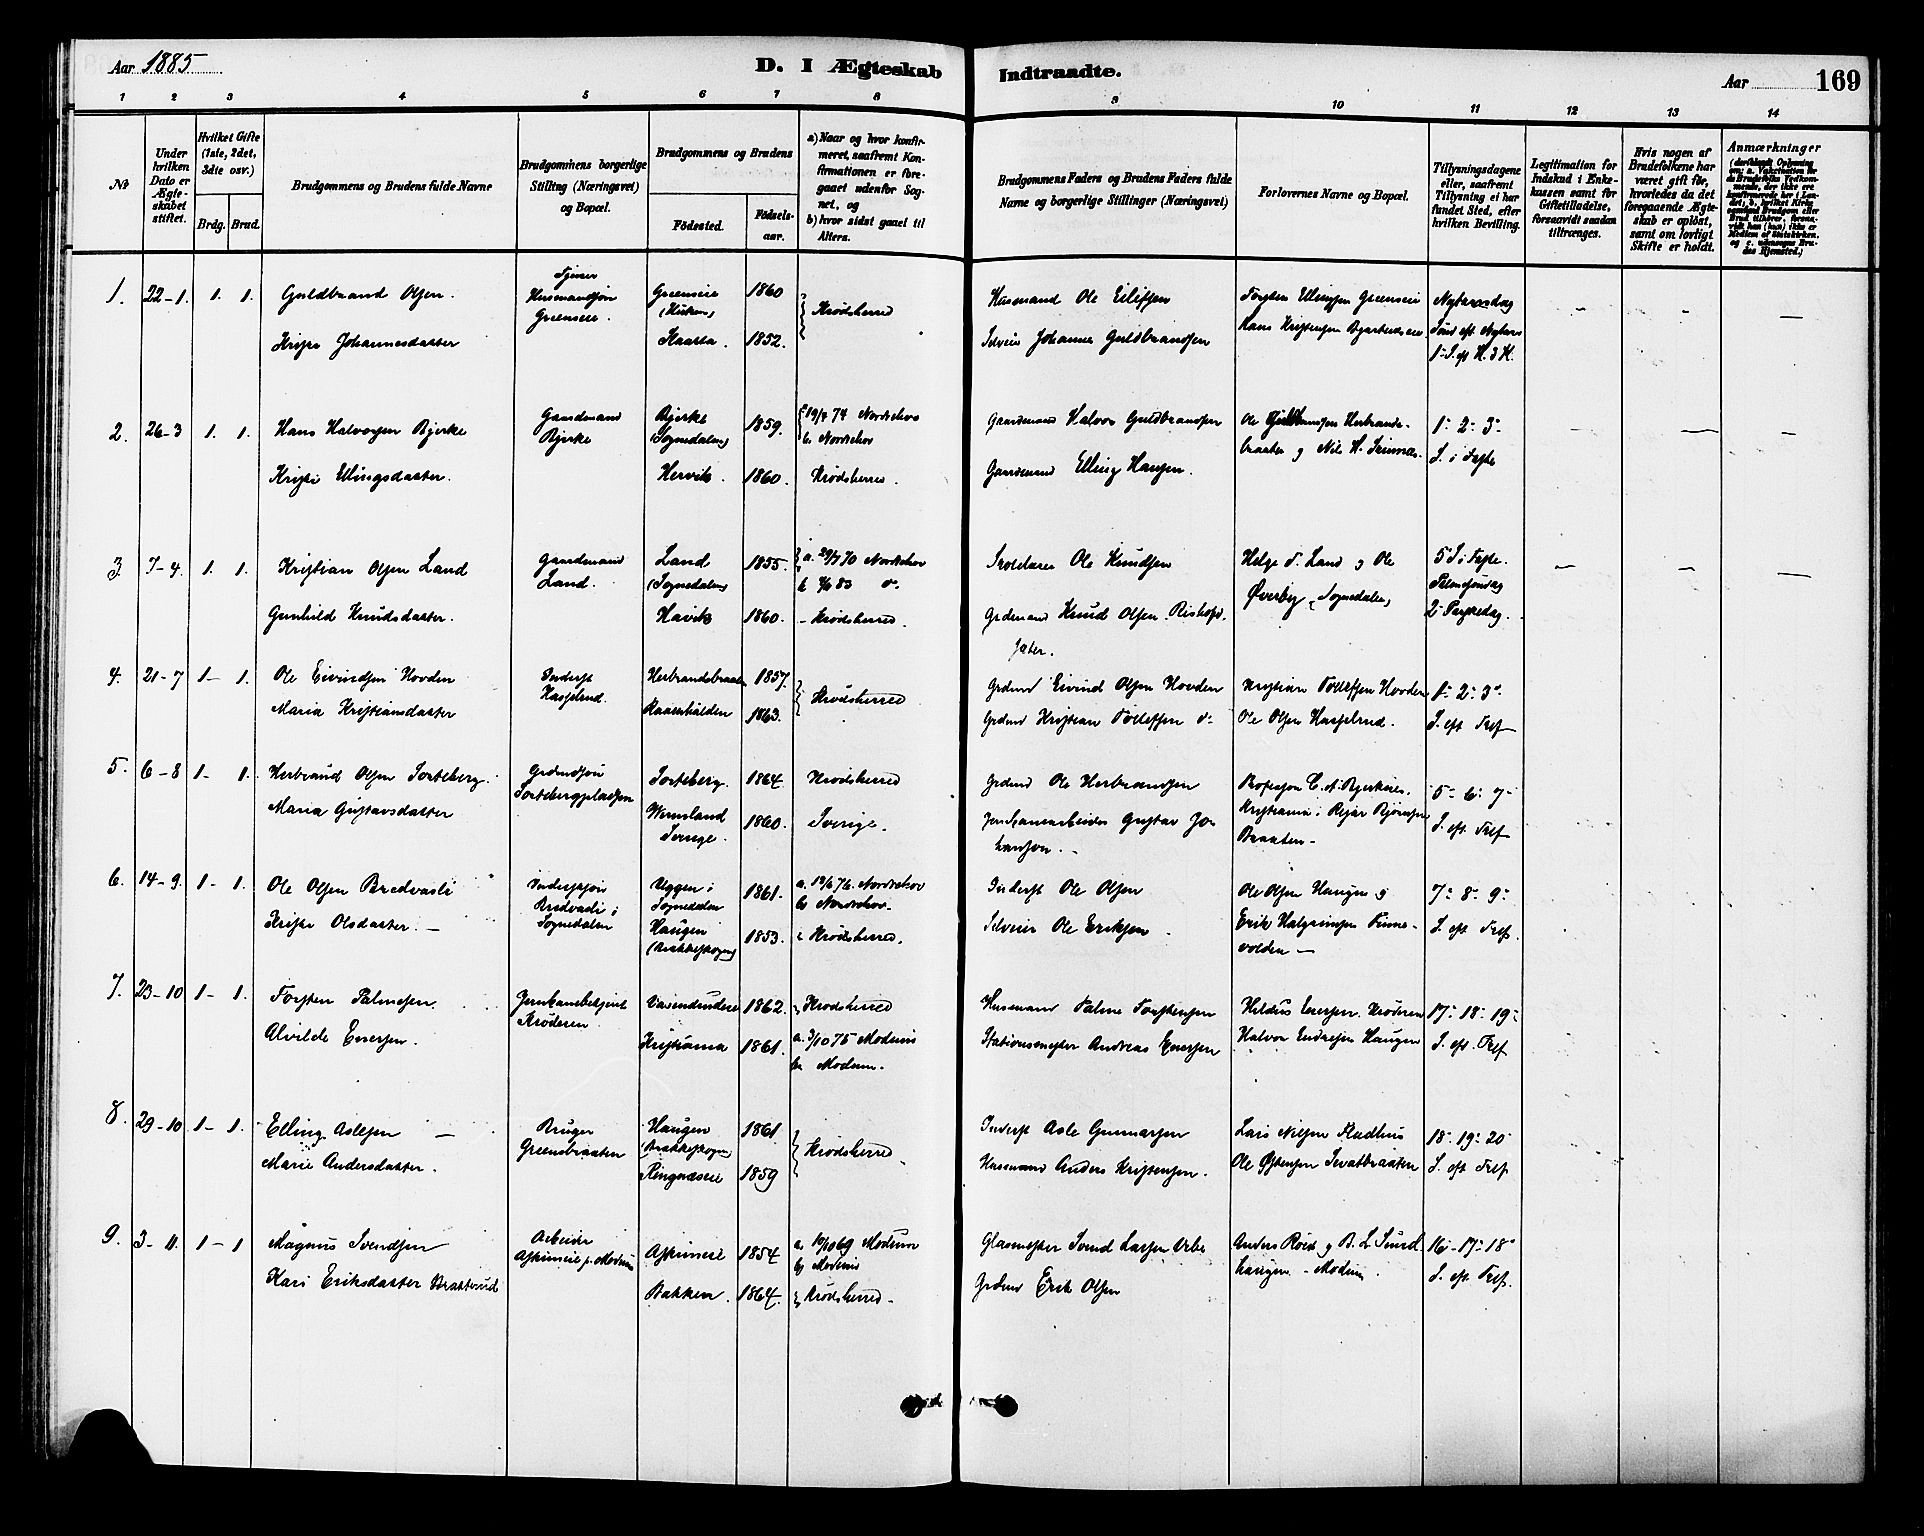 Aar 1885
D. I Ægteskab Indtraadte.
Aar 169
1 2 3 4 5 6 7 8 9 10 11 12 13 14
No
Under hvilken Dato er Ægteskabet stiftet.
Hvilket Gifte (1ste, 2det, 3die osv.)
Brdg. Brud.
Brudgommens og Brudens fulde Navne
Brudgommens borgerlige Stilling (Næringsvei) og Bopæl.
Brudgommens og Brudens
Fødested.
Fødselsaar.
a) Naar og hvor konfirmeret, saafremt Konfirmationen er foregaaet udenfor Sognet, og
b) hvor sidst gaaet til Alters.
Brudgommens Faders og Brudens Faders fulde Navne og borgerlige Stillinger (Næringsvei)
Forlovernes Navne og Bopæl.
Tillysningsdagene eller, saafremt Tillysning ei har fundet Sted, efter hvilken Bevilling.
Legitimation for Indskud i Enkekassen samt for Giftetilladelse, forsaavidt saadan tiltrænges.
Hvis nogen af Brudefolkene har været gift før, hvorledes da det foregaaende Ægteskab er opløst, samt om lovligt Skifte er holdt.
Anmærkninger
1. 22-1. 1. 1. Guldbrand Olsen. Tjener Husmandssøn Greenseie. Greenseie 1860 Krødsherred Husmand Ole Eilifsen Torsten Ellingsen Greenseie Nytaarsdag
Kristi Johannesdatter Kaasta. 1852. Selveier Johannes Guldbrandsen Hans Kristensen Sønd eft Nytaar
1ste S. eft H. 3 K.
2. 26-3 1. 1. Hans Halvorsen Bjerke Gaardmand Bjerke Bjerke (Sognedalen) 1859. 74 Norderhov b. Norderhov Gaardmand Halvor Guldbrandsen Ole Herbrandsbraaten og Nils H. 1- 2- 3-
Kristi Ellingsdatter. Hervik. 1860. Krødsherred. Gaardmand Elling Hansen. S. i Faste
3. 7-4. 1. 1. Kristian Olsen Land Gaardmand Land. Land (Sognedalen) 1855. a. 70 Norderhov b. 83 do. Ole Knudsen Helge S. Land og Ole Øverby (Sognedalen) 5 S. i Faste.
Palmesøndag
Gunhild Knudsdatter. Havik 1860. - Krødsherred. Grdmand Knud Olsen 2- Paaskedag.
4. 21-7 1- 1. Ole Eivindsen Hovden Inderst Hasselrud. Herbrandsbraaten 1857. Krødsherred Grdmd Eivind Olsen Hovden Kristian Tollefsen Hovden 1- 2- 3-
Maria Kristiansdatter 1863. Grdmd Kristian Tollefsen do Ole Olsen Hasselrud. S. eft Tref
5. 6-8 1- 1. Herbrand Olsen Sorteberg. Grdmdsøn Sortebergpladsen Sorteberg. 1864. Krødsherred Grdmd Ole Herbrandsen Professor C. A. Bjerknes. 5- 6- 7-
Maria Gustavsdatter Wermland Sverige. 1860. Sverige. Jernbanearbeider Gustav Johansson. - Kristiania. Braaten- S. eft. Tref
6. 14-9. 1- 1. Ole Olsen Bredvasli Inderstsøn Bredvasli i Sognedalen Veggen i Sognedalen 1861. a. 76. Norderhov b. Norderhov. Inderst Ole Olsen Ole Olsen Haugen og 7- 8- 9-
Kristi Olsdatter. - Haugen 1853. Krødsherred. Selveier Ole Eriksen. Erik Halgrimsen Finnevolden - S. eft Tref.
7. 23-10 1- 1. Torsten Palmesen. Jernbanebetjent Krøderen. 1862. Krødsherred Husmand Palme Torstensen Hildus Enersen. Krøderen 17- 18- 19-
Alvilde Enersen. Kristiania 1861. a. 3/10 75 Modum b. Modum. Stationsmester Andreas Enersen Halvor Endresen Haugen S. eft. Tref
8. 29-10 1- 1. Elling Aslesen - Bruger Greensbraaten Haugen 1861. Krødsherred Inderst Asle Gunnarsen Lars Nilsen Rudhus 18- 19- 20
Marie Andersdatter. Ringnæseie 1859 Husmand Anders Kristensen. Ole Østensen S. eft Tref
9. 3-11. 1- 1 Magnus Svendsen Arbeider Askimeie p. Modum Askimeie 1854 a. 69 Modum b. Modum Glasmester Svend Larsen Anders Roen og B. L. Sundhaugen - Modum. 16- 17- 18-
Kari Eriksdatter Bratterud Bakken. 1864. Krødsherred. Grdmd Erik Olsen S. eft Tref.